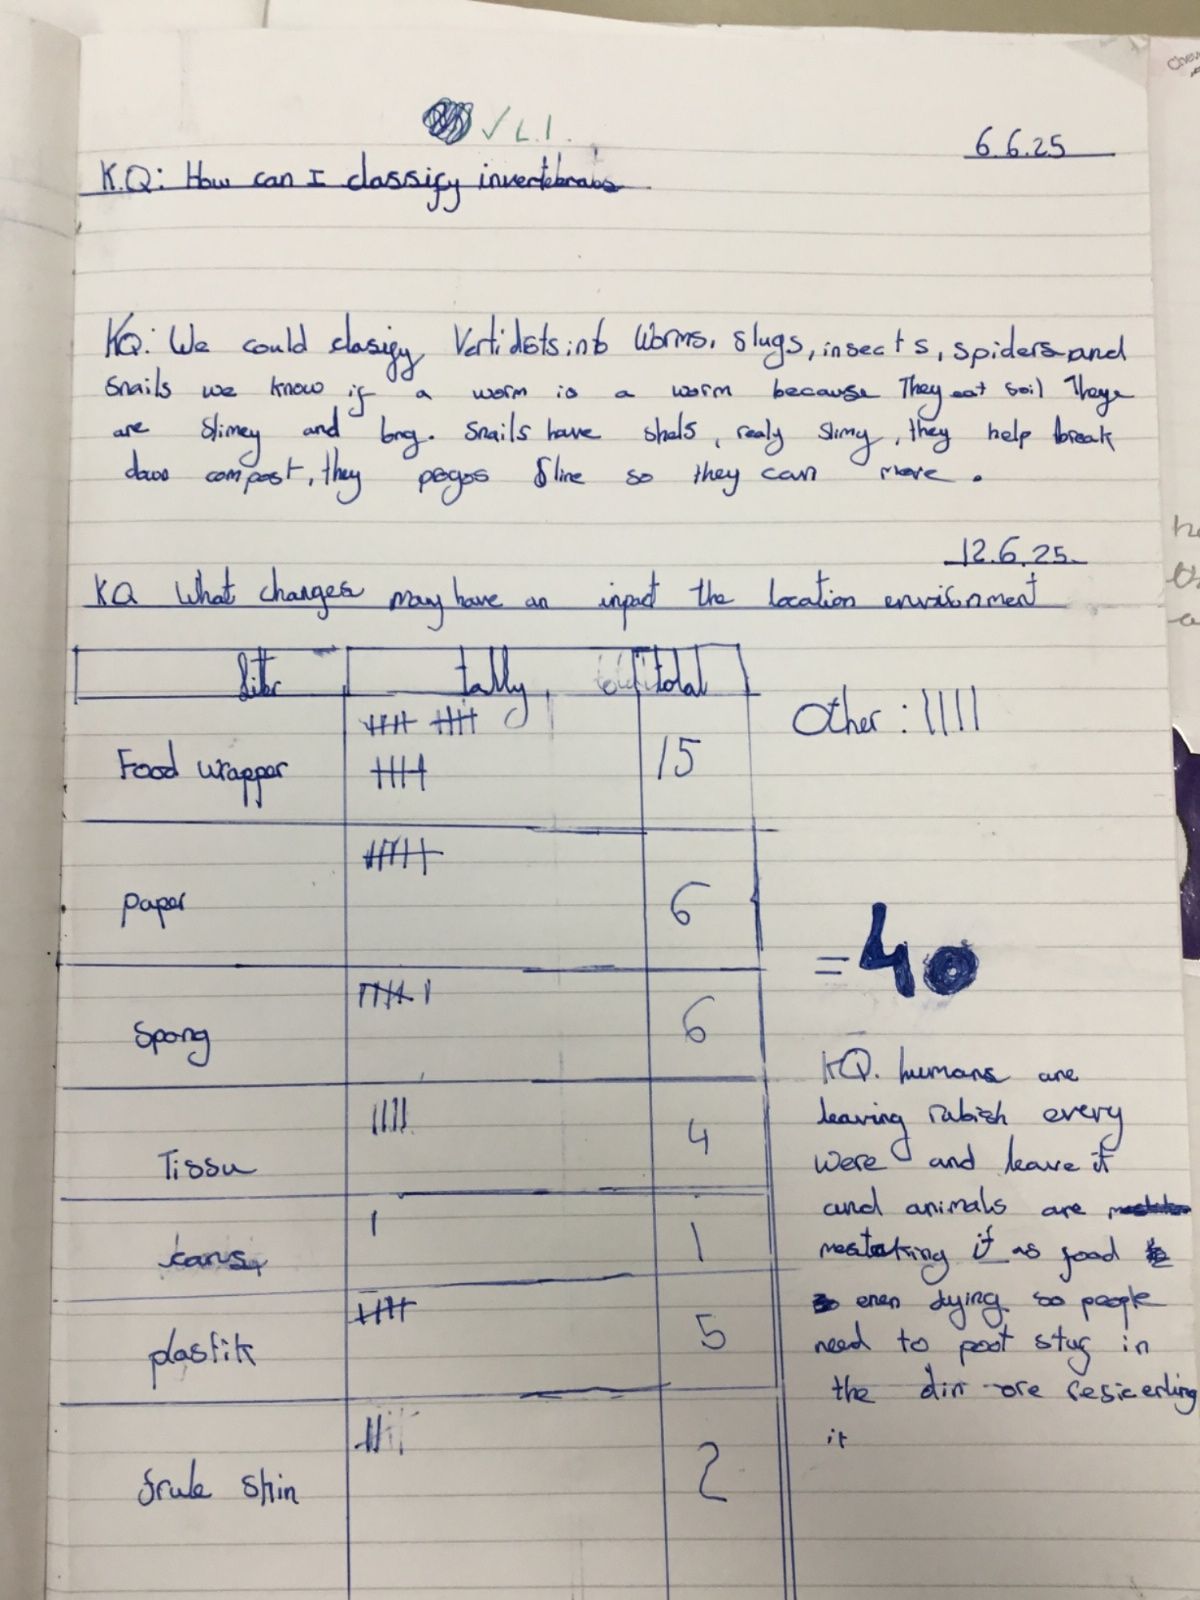 ✓ L.I.
6.6.25
K.Q: How can I classify invertebrabs
KQ: We could clasify Vertidists into Worms, slugs, insects, spiders and
snails we know if a worm is a worm because They eat soil Theye
are slimey and long. Snails have shals, realy slimy, they help break
down compost, they pegos sline so they can move.
12.6.25
KQ What changes may have an inpact the location environment
liter tally total
Food wrapper 15
paper 6
Spong 6
Tissu 4
cans 1
plastik 5
frute skin 2
Other : ||||
= 40
KQ. humans are
leaving rubish every
were and leave it
and animals are
mestaking it as food
even dying so people
need to poot stuf in
the din ore resicerling
it